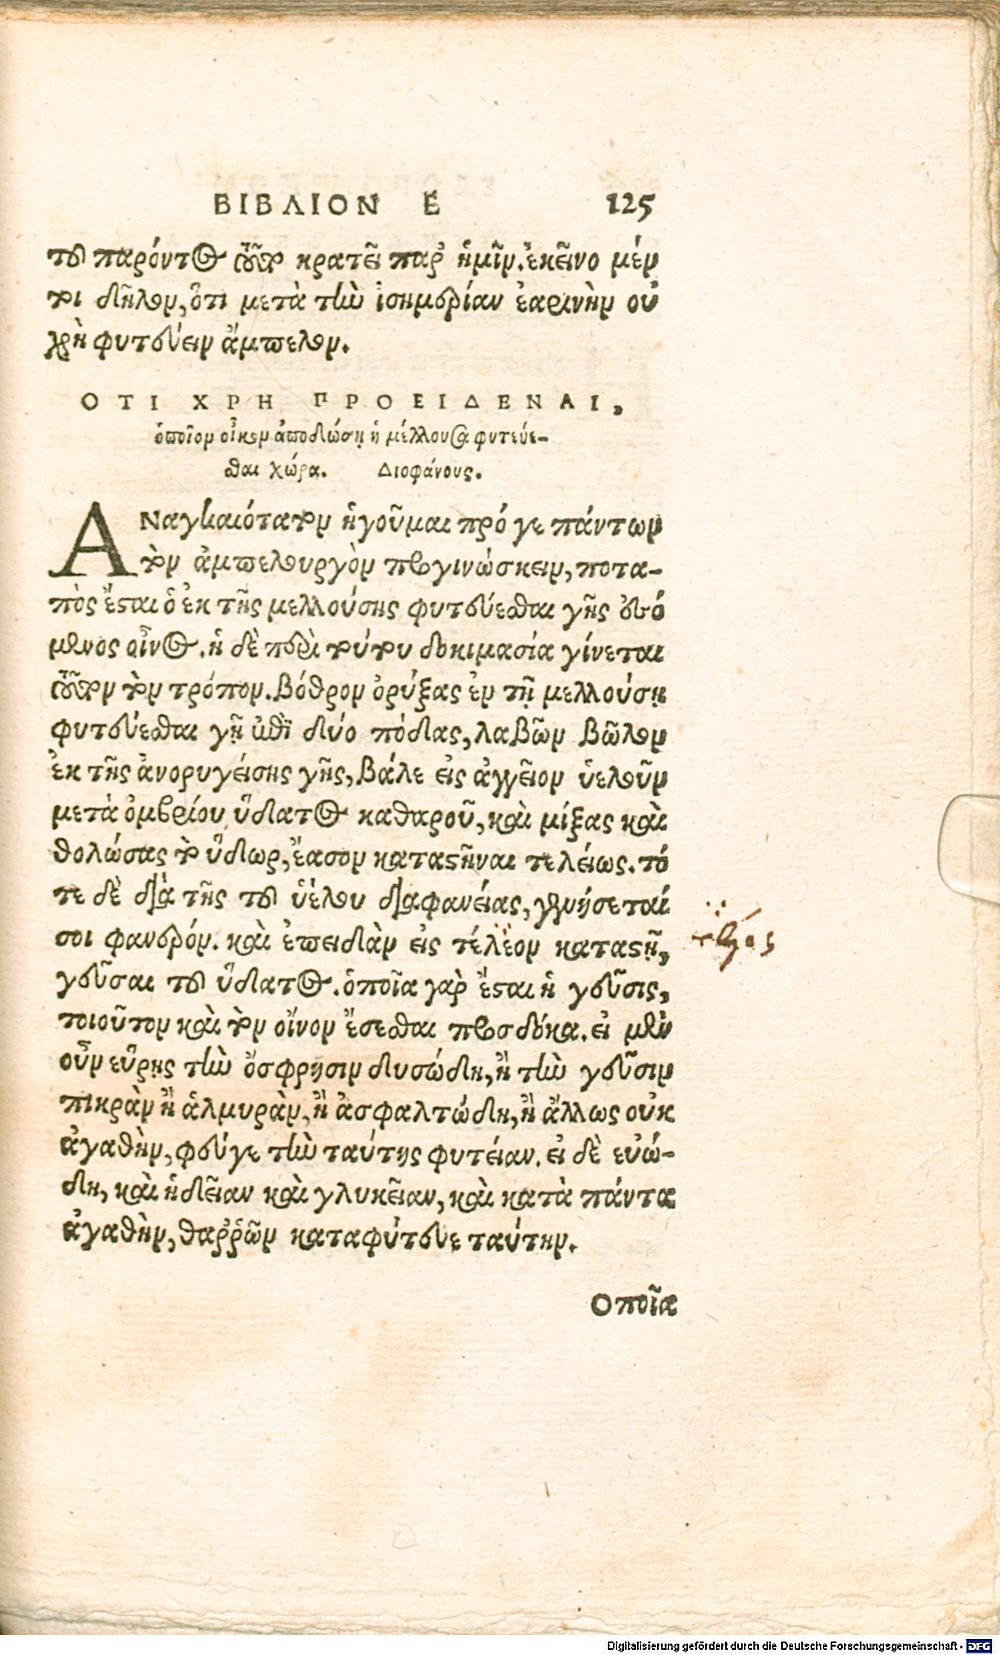 ΒΙΒΛΙΟΝ Ε 125
τοῦ παρόντος οὕτω κρατεῖ παρ' ἡμῖν. ἐκεῖνο μέν
τοι δῆλον, ὅτι μετὰ τὴν ἰσημερίαν ἐαρινὴν οὐ
χρὴ φυτεύειν ἄμπελον.
ΟΤΙ ΧΡΗ ΠΡΟΕΙΔΕΝΑΙ,
ὁποῖον οἶνον ἀποδώσῃ ἡ μέλλουσα φυτεύε-
σθαι χώρα. Διοφάνους.
ΑΝαγκαιότατον ἡγοῦμαι πρό γε πάντων
τὸν ἀμπελουργὸν προγινώσκειν, ποτα-
πὸς ἔσται ὁ ἐκ τῆς μελλούσης φυτεύεσθαι γῆς γενό
μενος οἶνος. ἡ δὲ περὶ τούτου δοκιμασία γίνεται
τοῦτον τὸν τρόπον. βόθρον ὀρύξας ἐν τῇ μελλούσῃ
φυτεύεσθαι γῇ ἐπὶ δύο πόδας, λαβὼν βῶλον
ἐκ τῆς ἀνορυγείσης γῆς, βάλε εἰς ἀγγεῖον ὑελοῦν
μετὰ ὀμβρίου ὕδατος καθαροῦ, καὶ μίξας καὶ
θολώσας τὸ ὕδωρ, ἔασον καταστῆναι τελείως. τό
τε δὲ διὰ τῆς τοῦ ὑέλου διαφανείας, γενήσεταί
σοι φανερόν. καὶ ἐπειδὰν εἰς τέλεον καταστῇ,
γεῦσαι τοῦ ὕδατος. ὁποῖα γὰρ ἔσται ἡ γεῦσις,
τοιοῦτον καὶ τὸν οἶνον ἔσεσθαι προσδόκα. εἰ μὲν
οὖν εὕρῃς τὴν ὄσφρησιν δυσώδη, ἢ τὴν γεῦσιν
πικρὰν ἢ ἁλμυρὰν, ἢ ἀσφαλτώδη, ἢ ἄλλως οὐκ
ἀγαθὴν, φεύγε τὴν ταύτης φυτείαν. εἰ δὲ εὐώ-
δη, καὶ ἡδεῖαν καὶ γλυκεῖαν, καὶ κατὰ πάντα
ἀγαθὴν, θαῤῥῶν καταφύτευε ταύτην.
Οποῖα
Digitalisierung gefördert durch die Deutsche Forschungsgemeinschaft - DFG